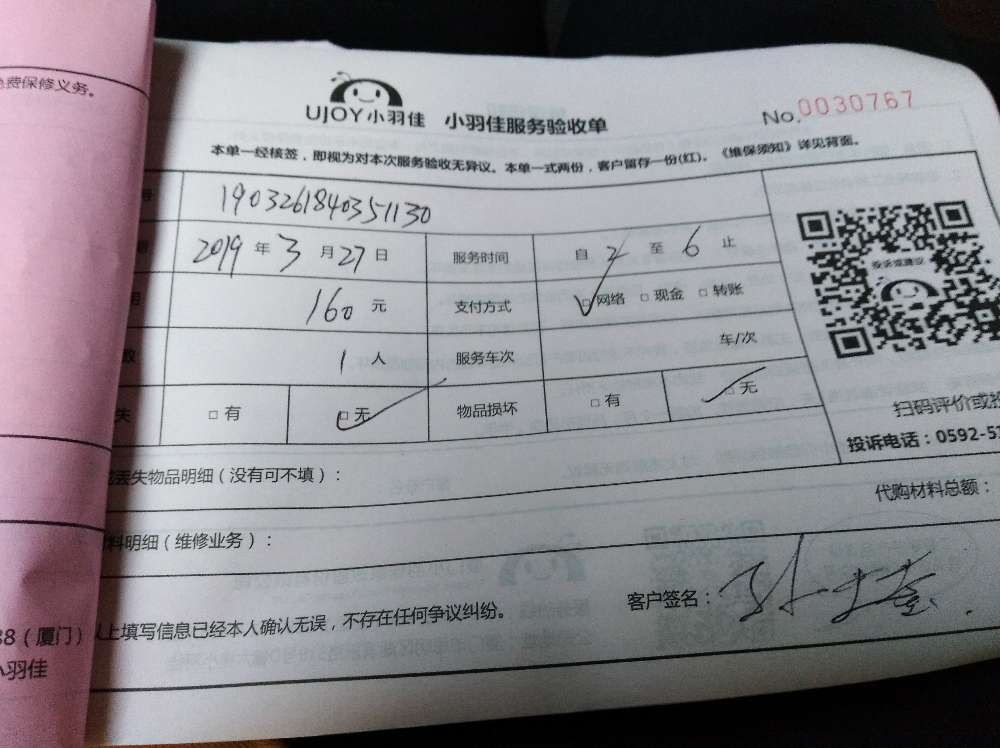 免费保修义务。
UJOY小羽佳 小羽佳服务验收单 No.0030767
本单一经核签，即视为对本次服务验收无异议。本单一式两份，客户留存一份(红)。《维保须知》详见背面。
号 1903261840351130
2019年3月27日 服务时间 自2至6止
160元 支付方式 □网络 □现金 □转账
数 1人 服务车次 车/次
失 □有 □无 物品损坏 □有 □无
投诉或建议
扫码评价或投
投诉电话：0592-51
丢失物品明细（没有可不填）：
代购材料总额：
料明细（维修业务）：
以上填写信息已经本人确认无误，不存在任何争议纠纷。
客户签名：
88（厦门）
小羽佳